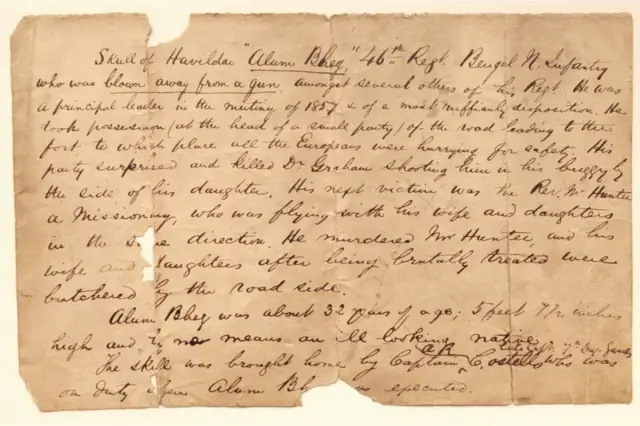 Skull of Havildar "Alum Bheg," 46th Regt. Bengal N. Infantry
who was blown away from a gun, amongst several others of his Regt. He was
a principal leader in the mutiny of 1857 & of a most ruffianly disposition. He
took possession (at the head of a small party) of the road leading to the
fort, to which place all the Europeans were hurrying for safety. His
party surprised and killed Dr. Graham shooting him in his buggy by
the side of his daughter. His next victim was the Rev. Mr. Hunter
a Missionary, who was flying with his wife and daughters
in the same direction. He murdered Mr Hunter, and his
wife and daughters after being brutally treated were
butchered by the road side.
Alum Bheg was about 32 years of age; 5 feet 7 1/2 inches
high and by no means an ill looking native.
The skull was brought home by Captain Costello who was
7th Drag. Guards
on duty when Alum Bheg was executed.